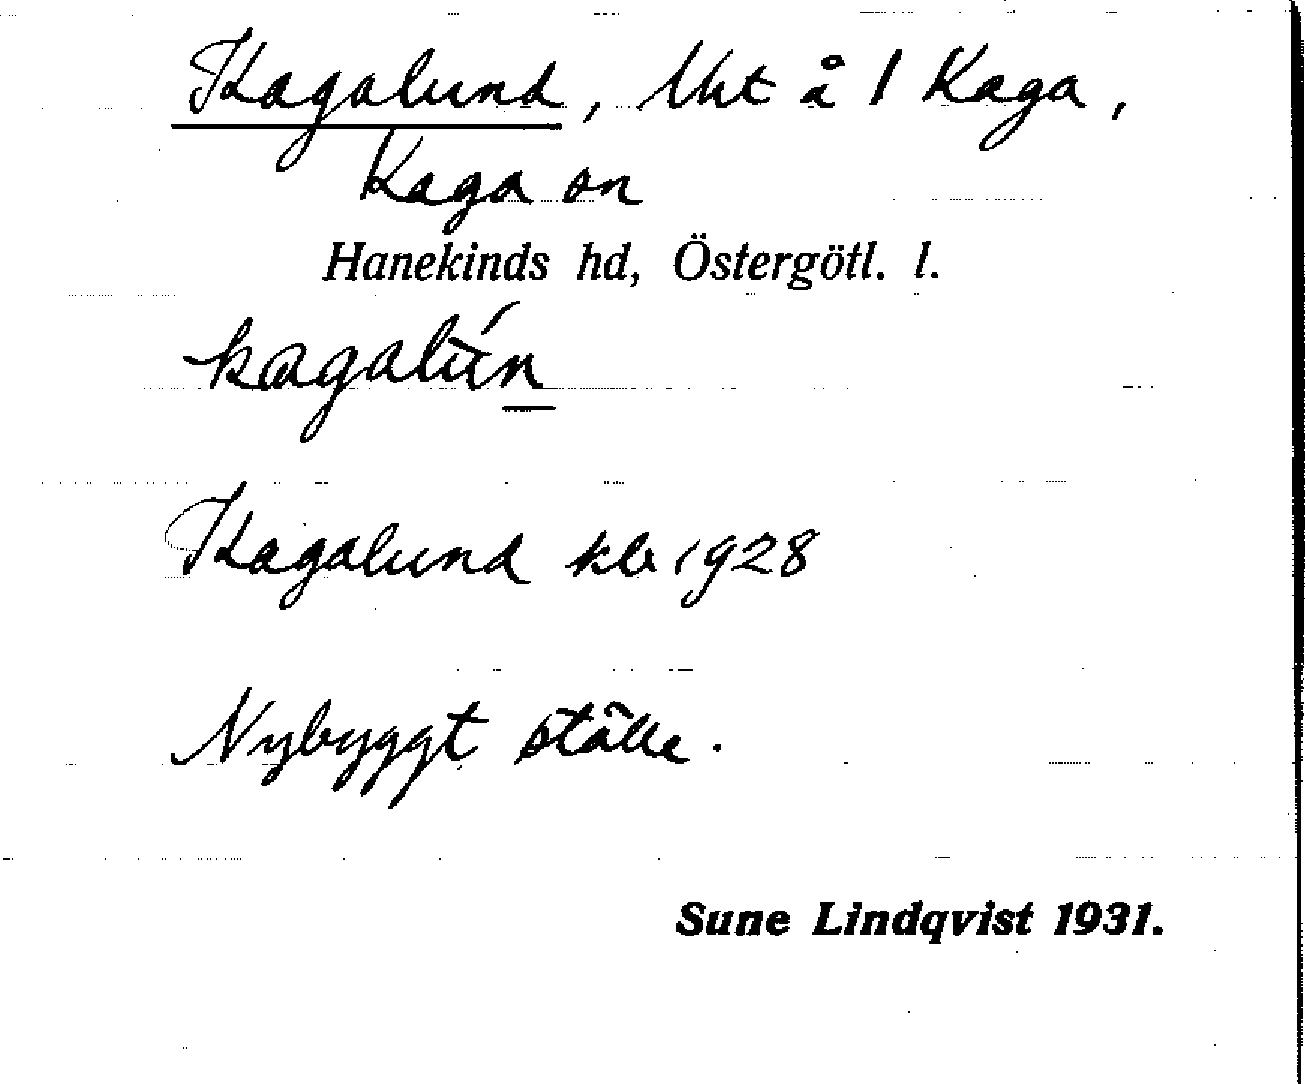 Kagalund, lht å 1 Kaga,
Kaga sn
Hanekinds hd, Östergötl. l.
kagalún
Kagalund kb 1928
Nybyggt ställe.
Sune Lindqvist 1931.